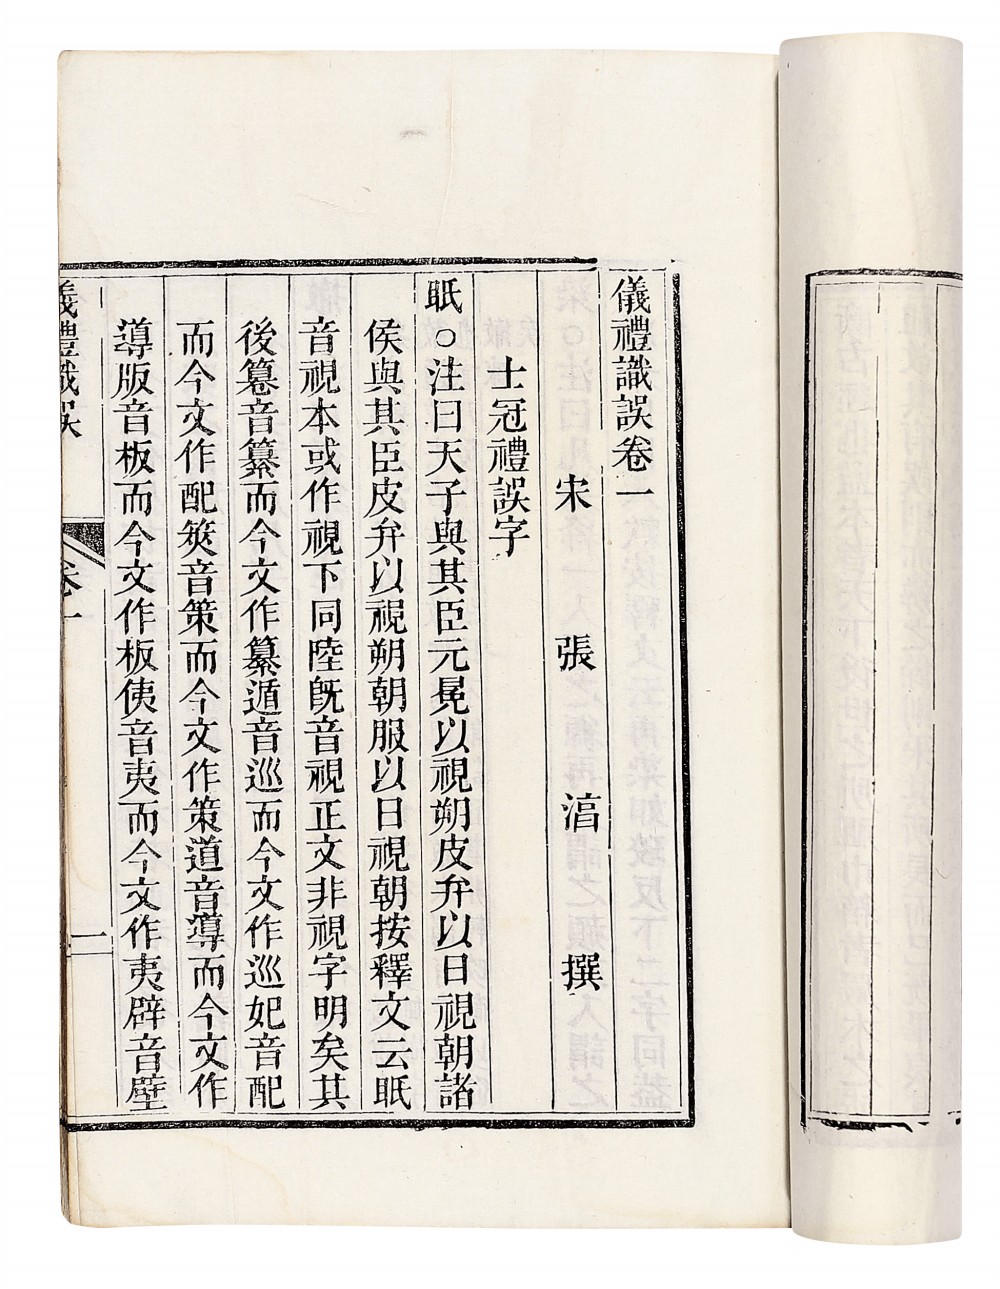 儀禮識誤卷一
宋 張 湻 撰
士冠禮誤字
眂○注曰天子與其臣元冕以視朔皮弁以日視朝諸
侯與其臣皮弁以視朔朝服以日視朝按釋文云眂
音視本或作視下同陸旣音視正文非視字明矣其
後篹音纂而今文作纂遁音巡而今文作巡妃音配
而今文作配筴音策而今文作策道音導而今文作
導版音板而今文作板侇音夷而今文作夷辟音壁
儀禮識誤 卷一 一